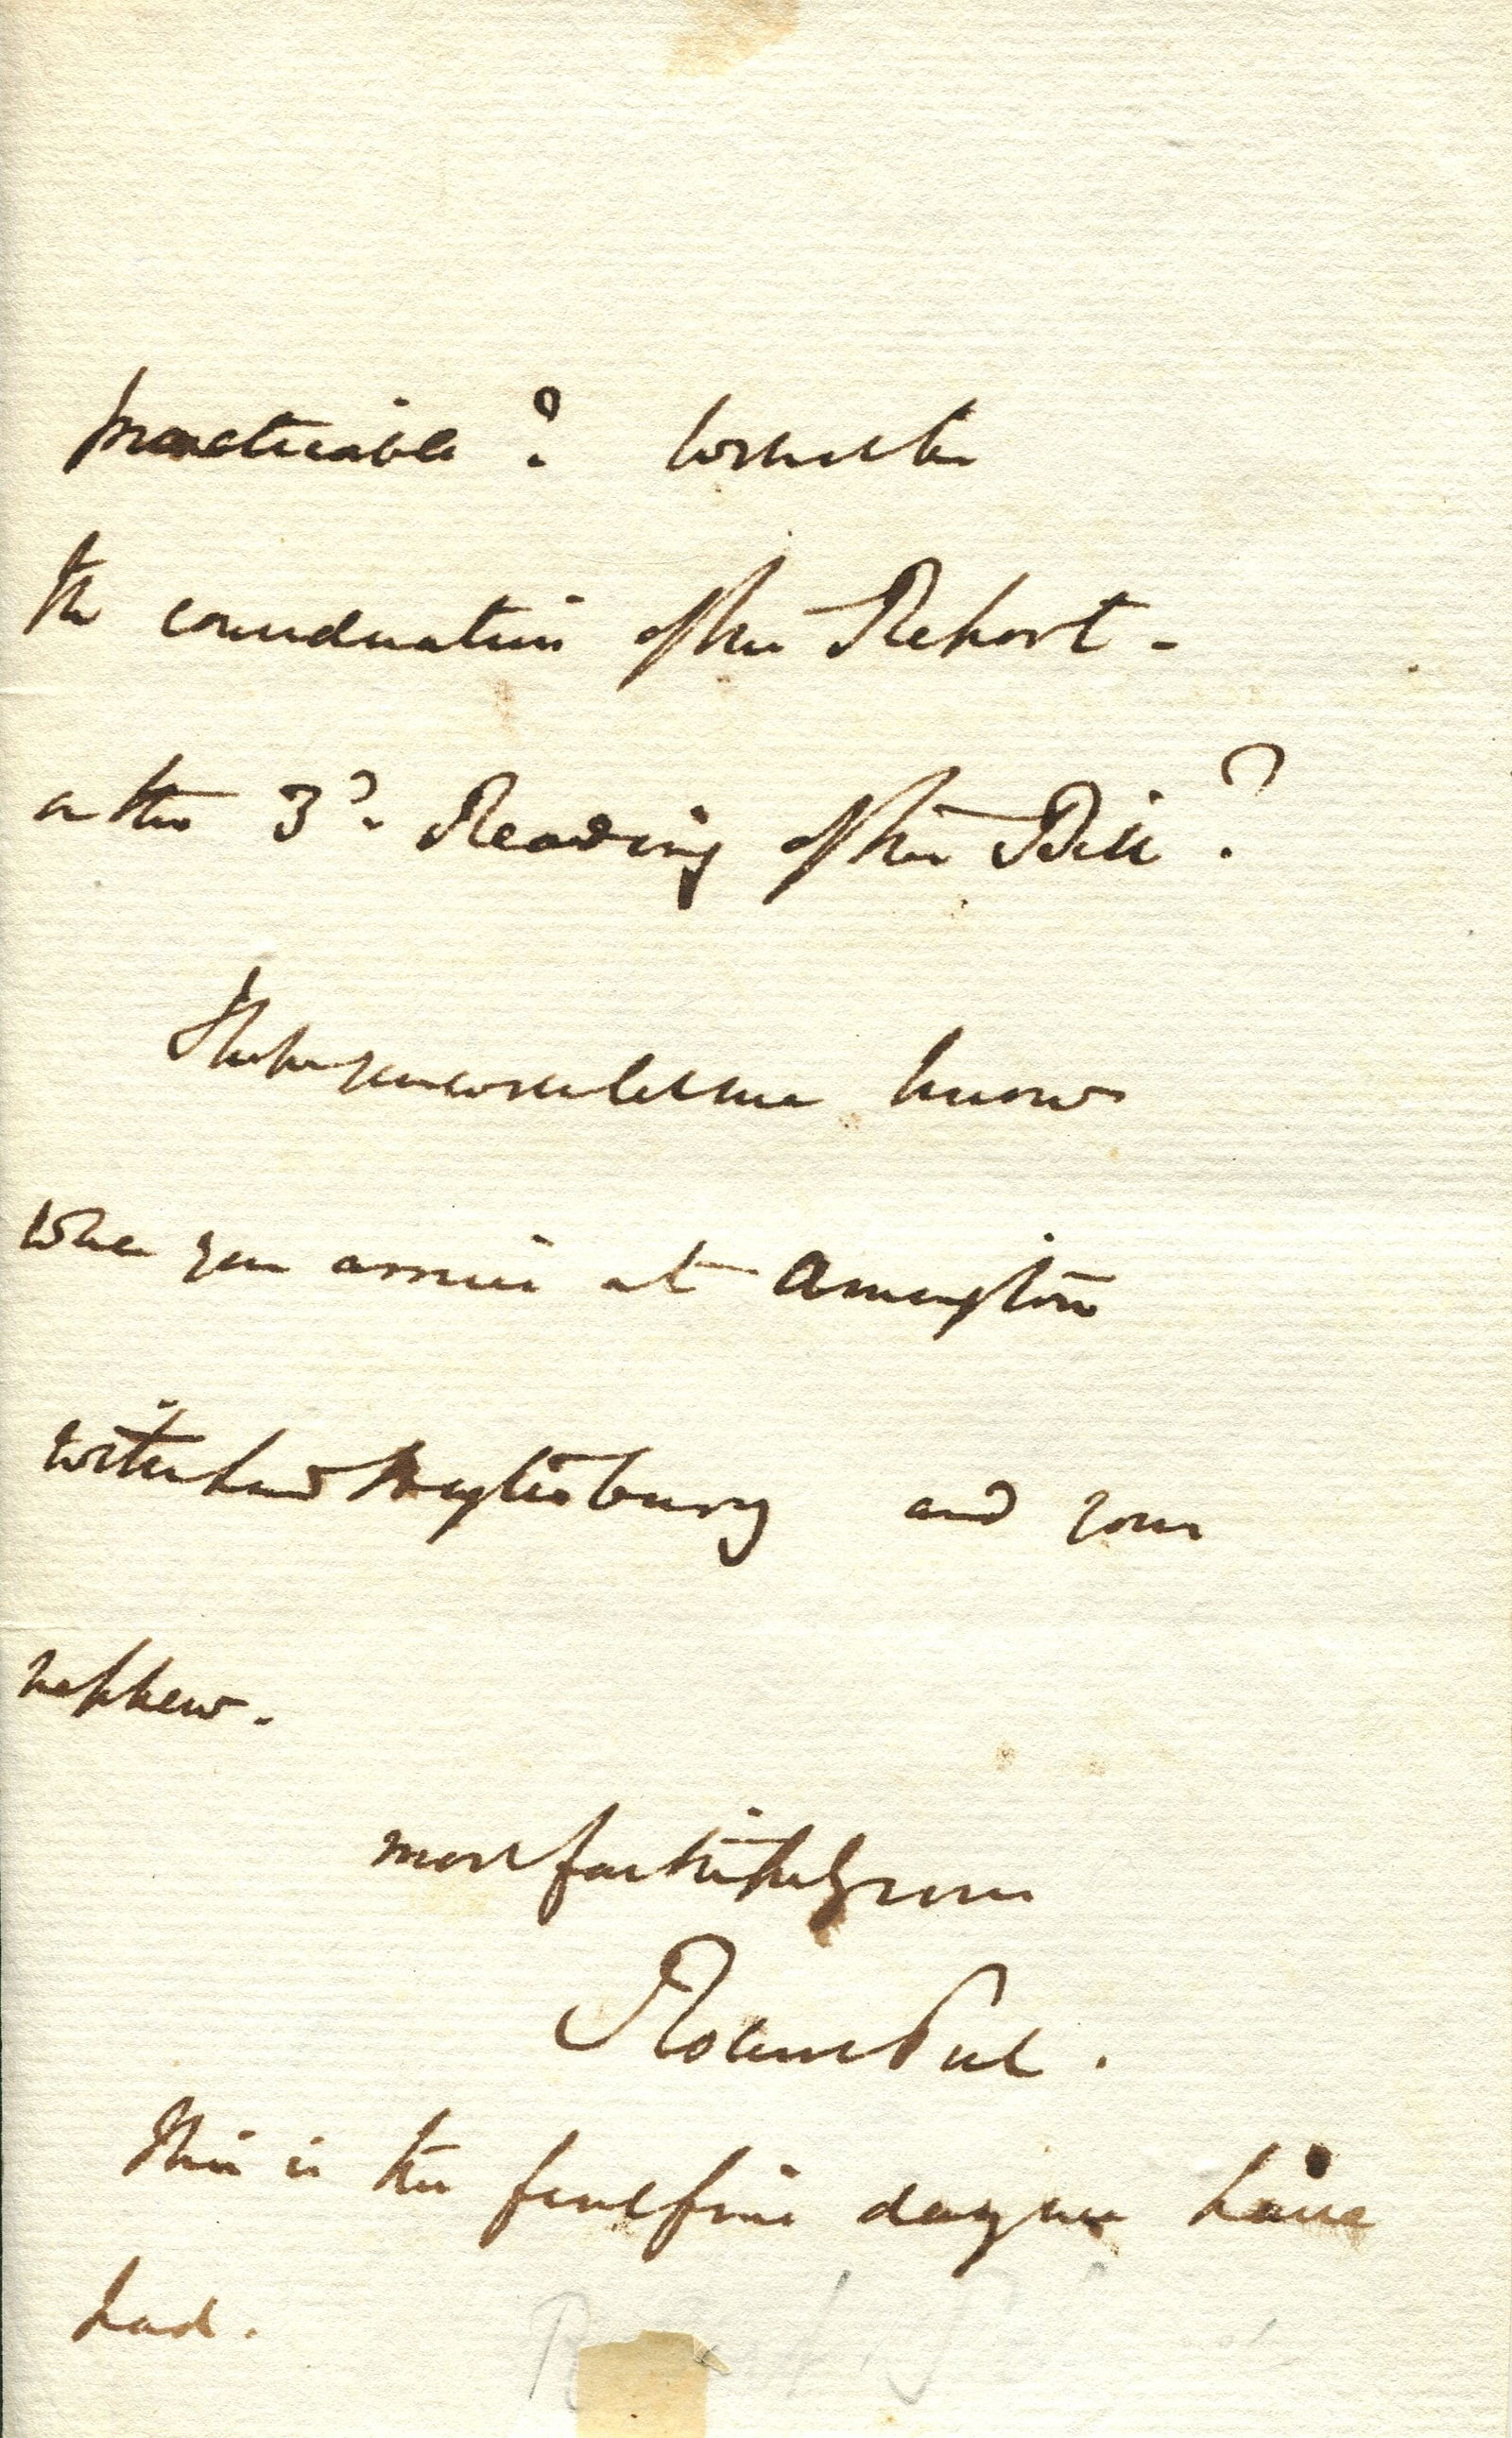 practicable? Will it be
the consideration of the Report -
or the 3d. Reading of the Bill?
I hope you will let me know
when you arrive at Amington
with Lord Heytesbury and your
nephew.
most faithfully yours
Robert Peel.
This is the first fine day we have
had.